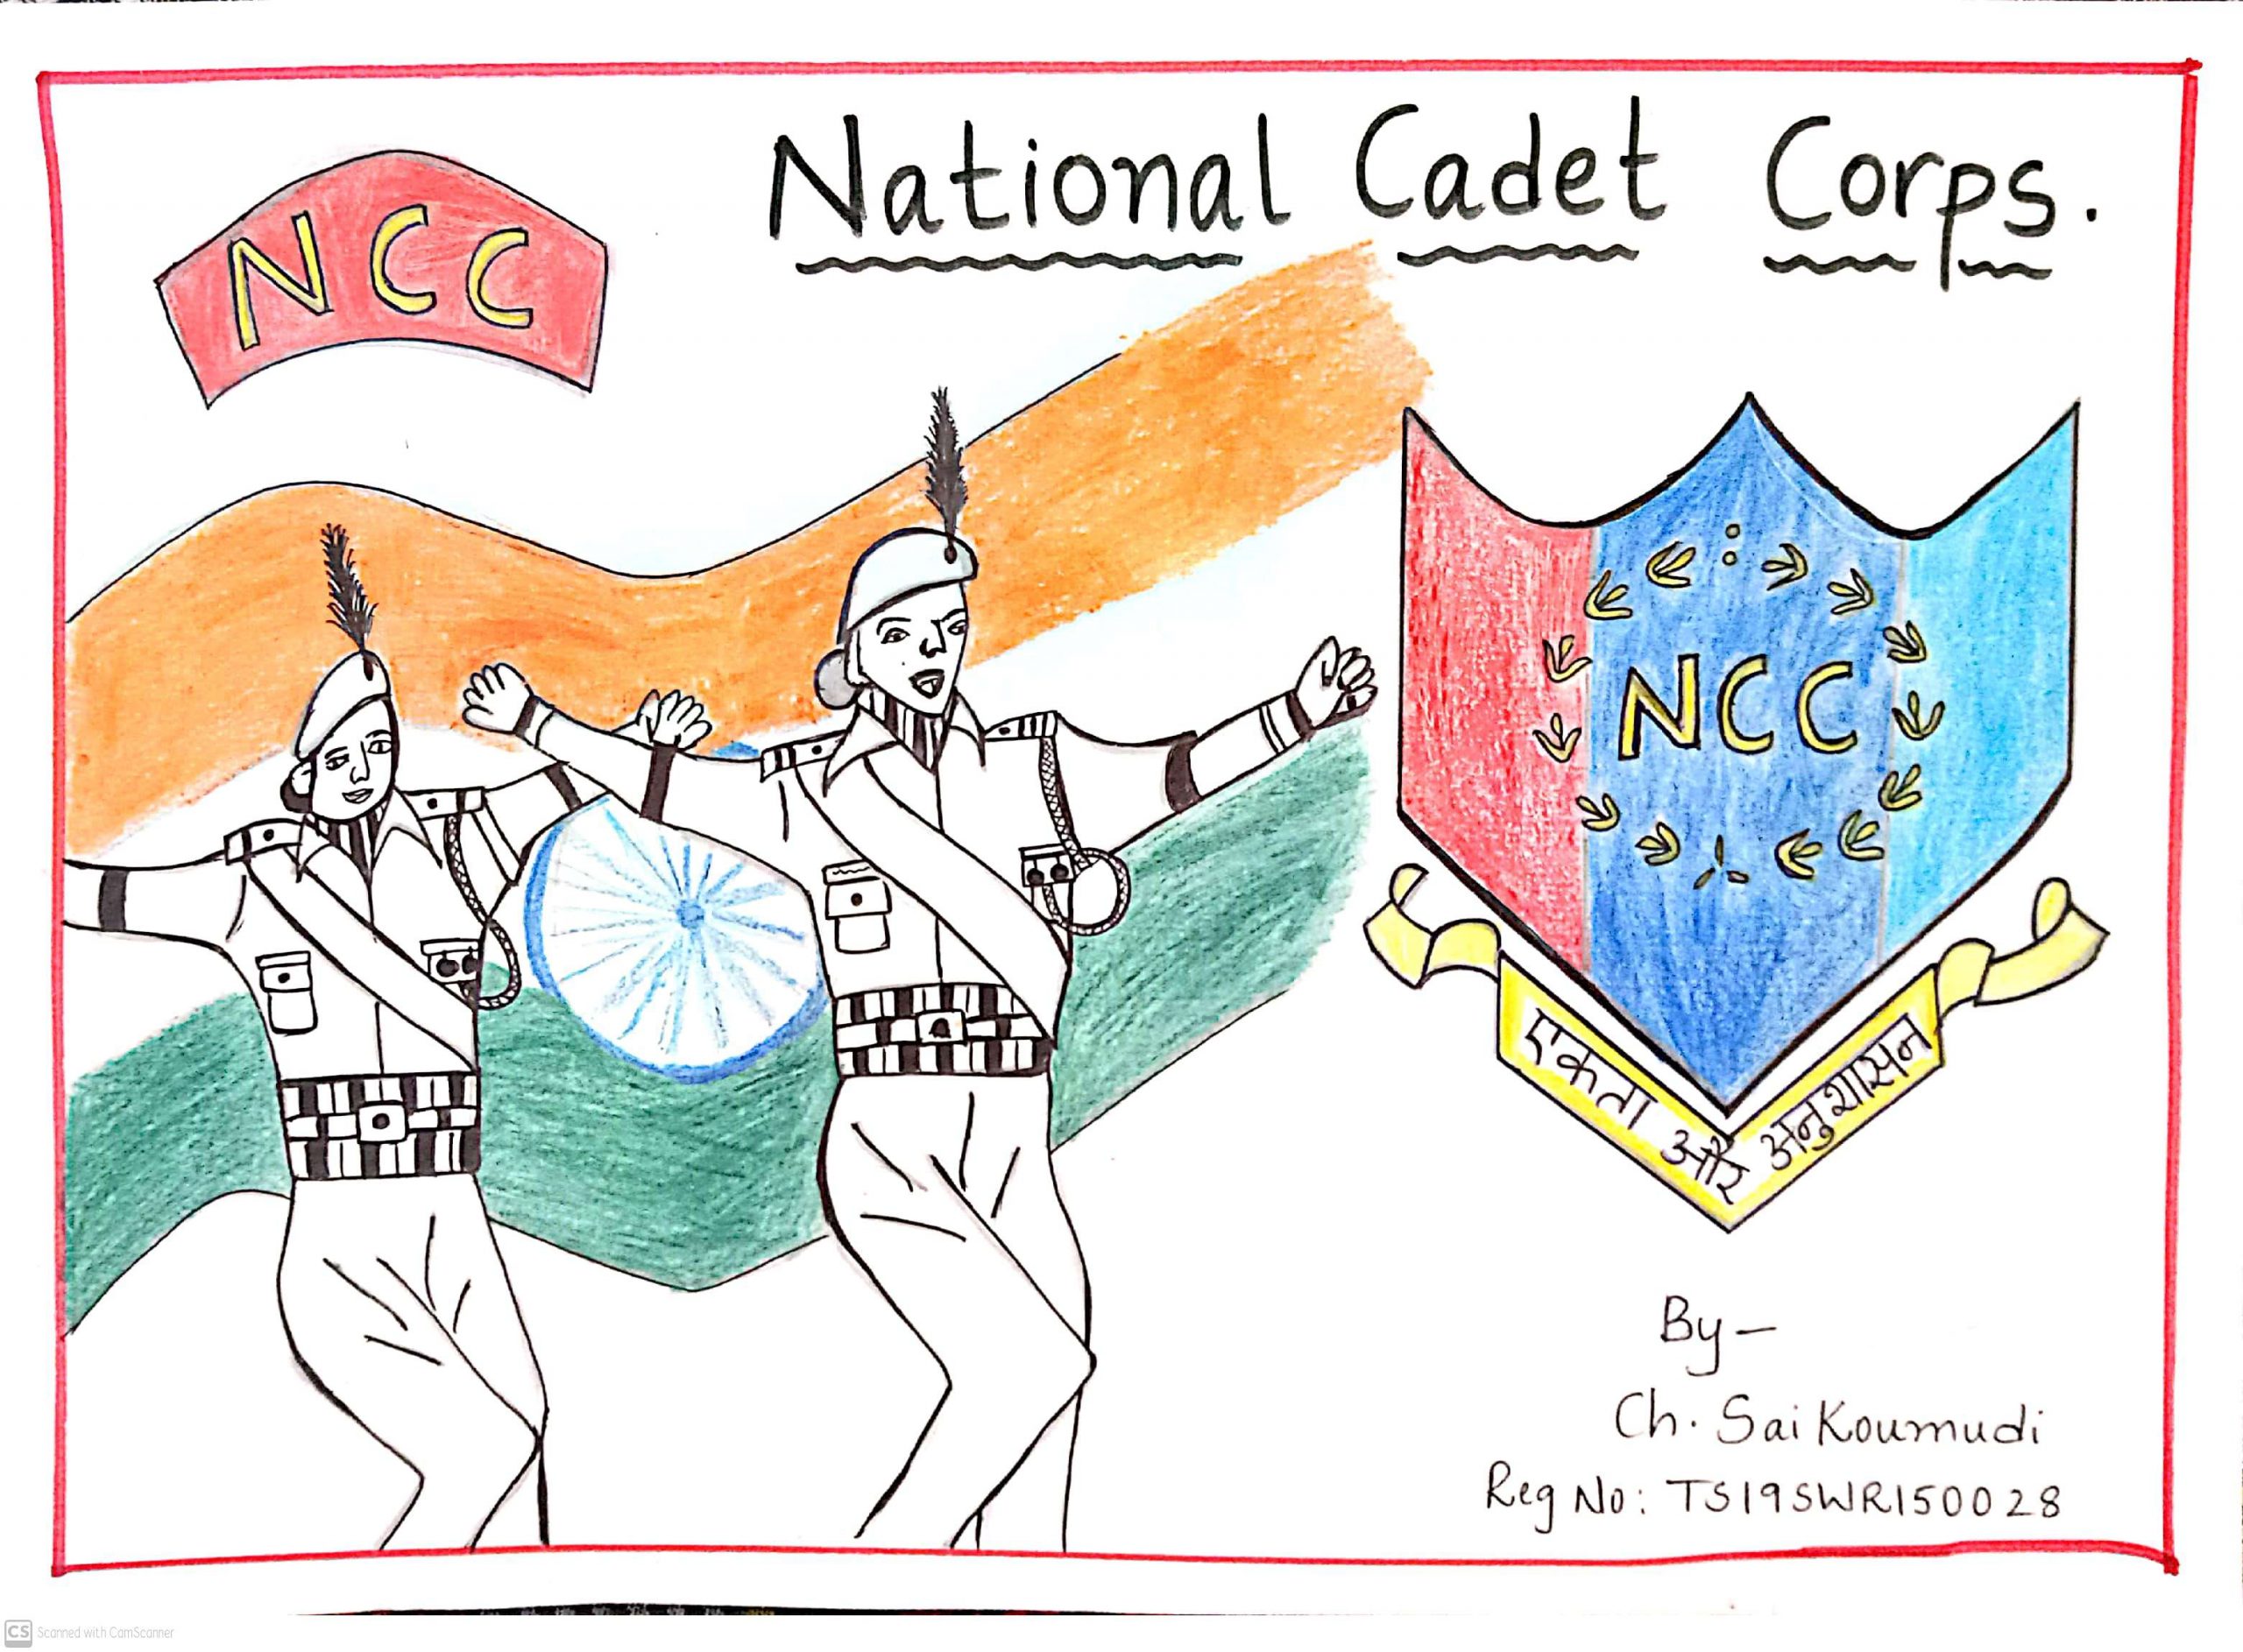 National Cadet Corps.
NCC
NCC
एकता और अनुशासन
By-
Ch. Sai Koumudi
Reg No: TS19SWR150028
CS Scanned with CamScanner